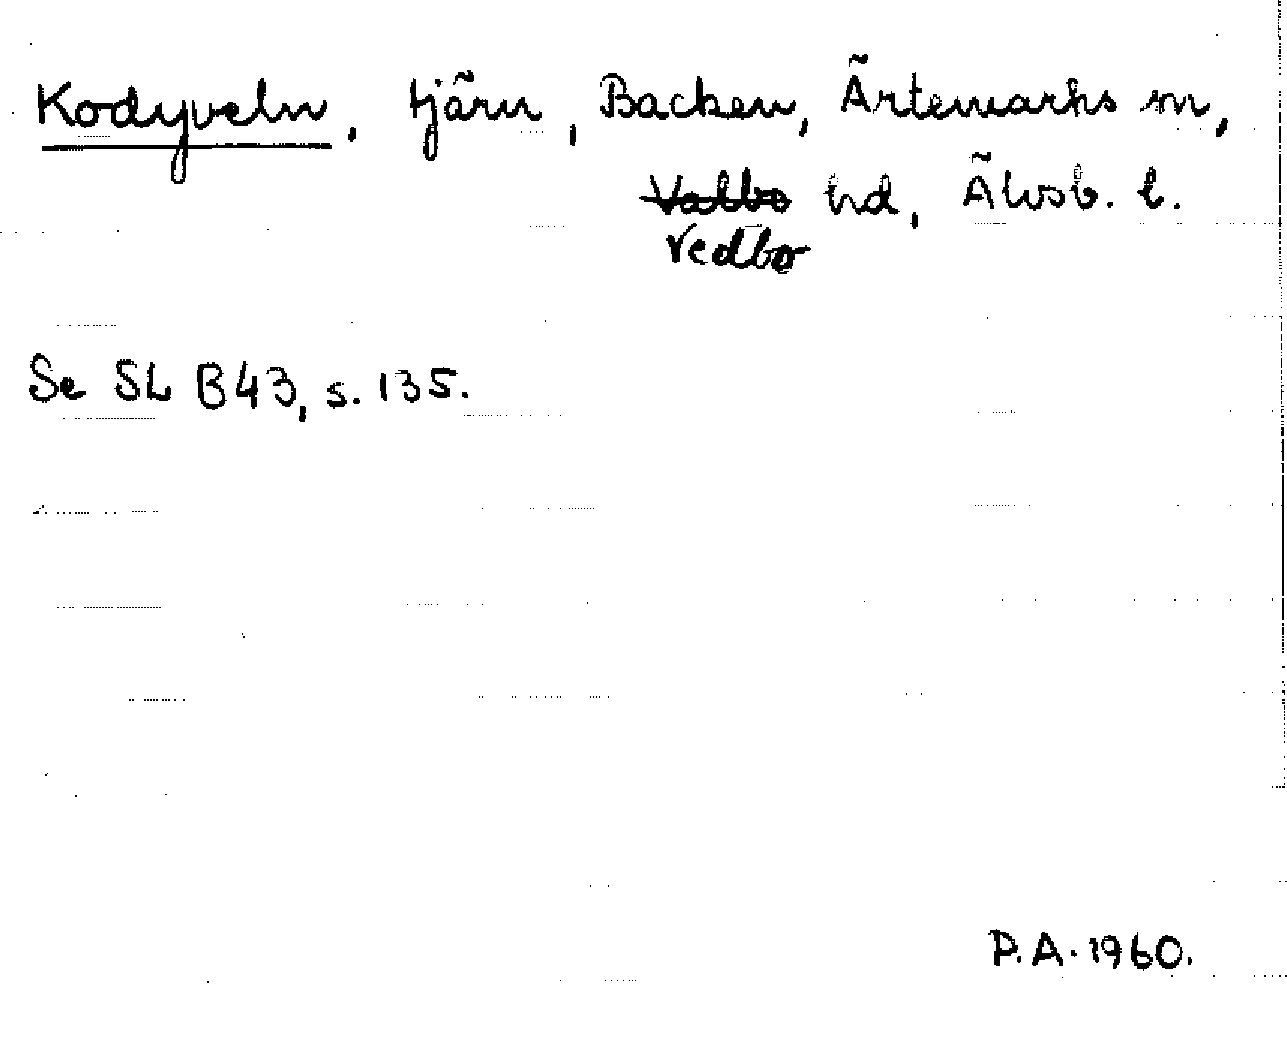 Kodyveln, tjärn, Backen, Ärtemarks sn,
Valbo hd, Älvsb. l.
Vedbo
Se SL B43, s. 135.
P.A. 1960.